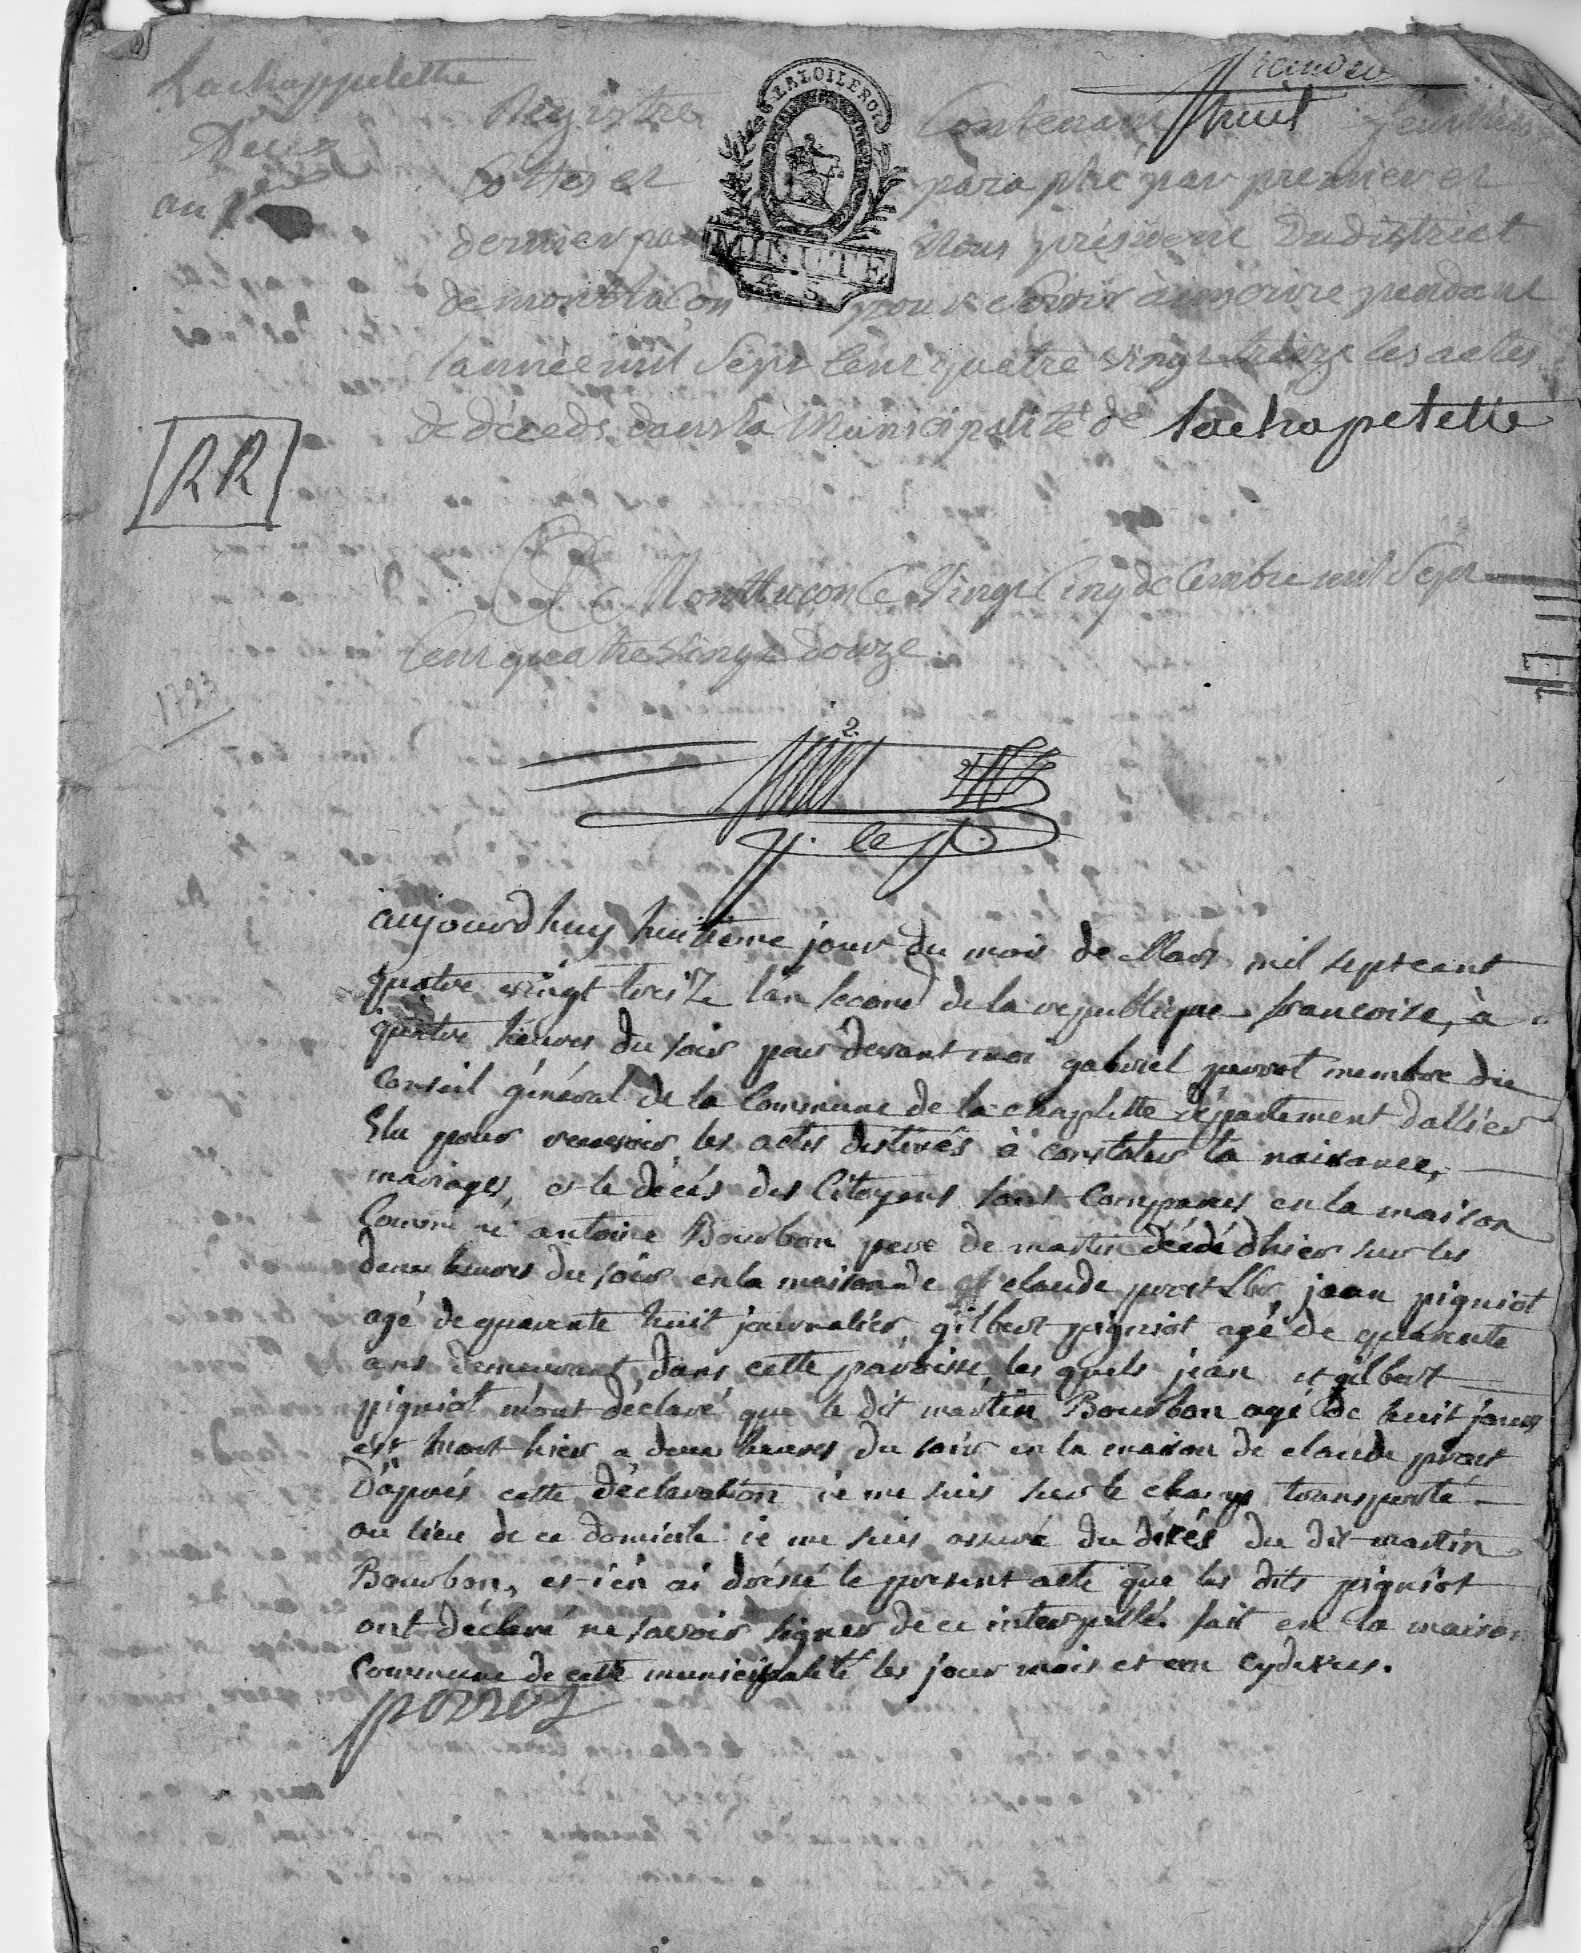 Lachappelette
Registre Contenant huit feuillets
Deux
Cottés et paraphé par premier et
an
dernier par Nous président du district
de montluçon pour servir à inscrire pendant
l'année mil Sept Cent quatre vingt treize les actes
de décéds dans la Municipalité de lachapelette
LALOILEROI
MINUTE
4 S
RR
A Montluçon Ce Vingt Cinq decembre mil Sept
Cent quatre Vingt douze
1793
aujourdhuy huitieme jour du mois de Mars mil sept cent
quatre vingt treize lan second de la republique francoise, à
quatre heures du soir par devant moi gabriel perrot membre du
Conseil général de la Commune de la chaplette département dallier
Elu pour recevoir les actes destinés à constater la naisance,
mariages, et le décés des Citoyens sont Comparus en la maison
Commune antoine Bourbon pere de martin décédé dhier sur les
deux heures du soir en la maison de claude jean pigniot
agé de quarente huit journalier, gilbert pigniot agé de quarente
ans demeurant dans cette paroisse, les quels jean et gilbert
pigniot m'ont déclaré que le dit martin Bourbon agé de huit jours
est mort hier a deux heures du soir en la maison de claude
D'aprés cette déclaration ie me suis sur le champ transporté
au lieu de ce domicile ie me suis assuré du décés du dit martin
Bourbon, et i'en ai dressé le present acte que les dits pigniot
ont déclaré ne savoir signer de ce interpellé. fait en la maison
Commune de cette municipalité les jour mois et an cydessus.
perrot